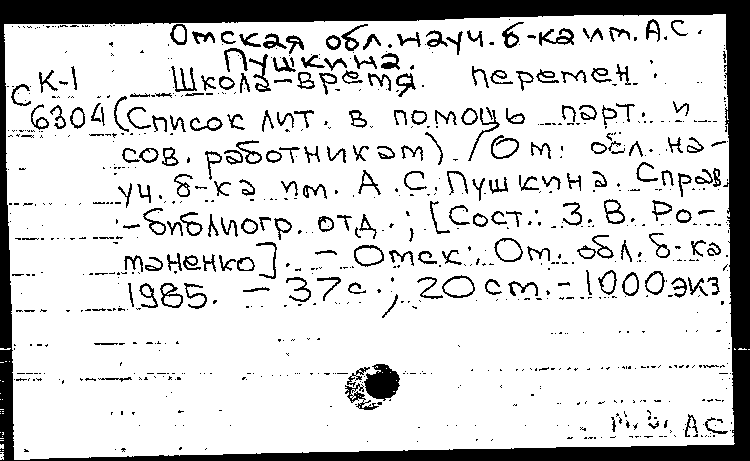 Омская обл. науч. б-ка им. А.С.
Пушкина.
К-1 Школа-время перемен:
С 6304 (Список лит. в помощь парт. и
сов. работникам) / Ом. обл. на-
уч. б-ка им. А.С. Пушкина. Справ.
-библиогр. отд.; [Сост.: З. В. Ро-
маненко]. - Омск: Ом. обл. б-ка
1985. - 37 с.; 20 cm. - 1000 экз.
АС